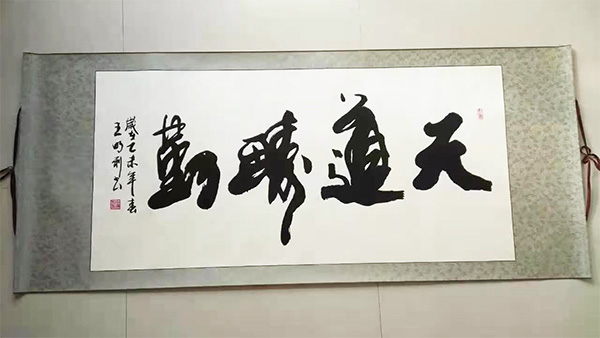 天道酬勤
歲在乙未年春
王明利书